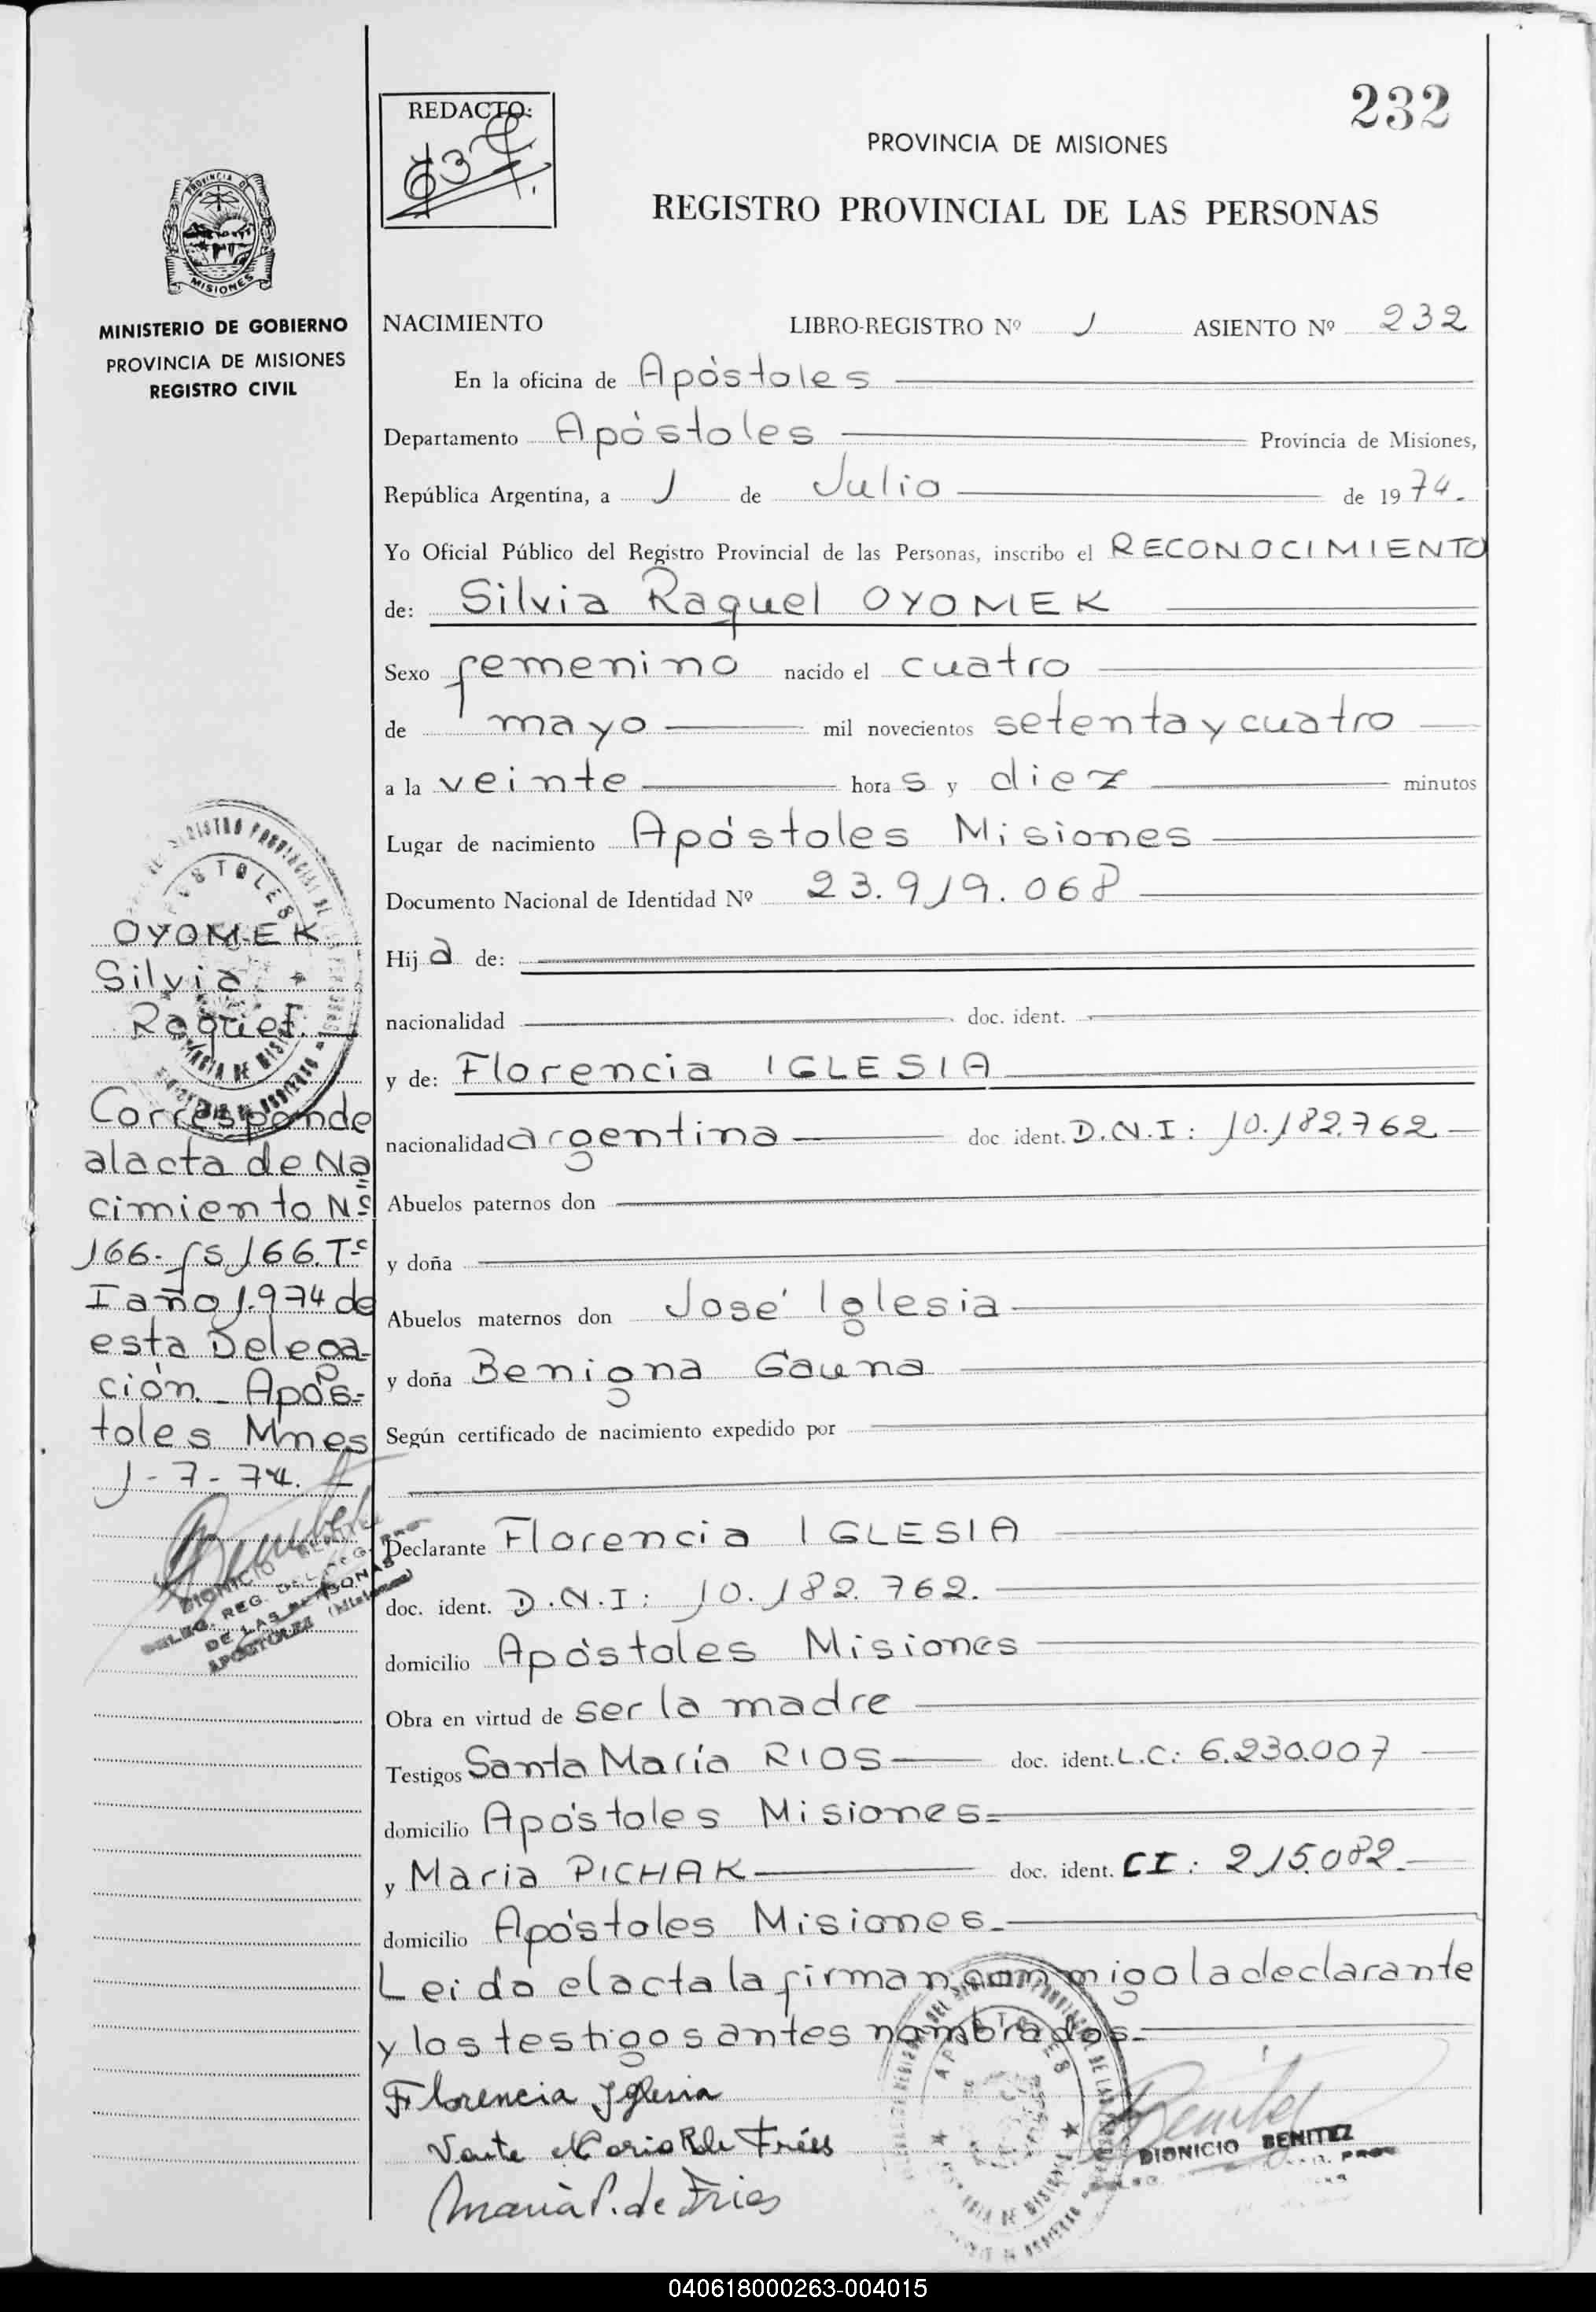 232
REDACTO:
PROVINCIA DE MISIONES
REGISTRO PROVINCIAL DE LAS PERSONAS
PROVINCIA DE
MISIONES
MINISTERIO DE GOBIERNO
PROVINCIA DE MISIONES
REGISTRO CIVIL
NACIMIENTO LIBRO-REGISTRO Nº 1 ASIENTO Nº 232
En la oficina de Apóstoles
Departamento Apóstoles Provincia de Misiones,
República Argentina, a 1 de Julio de 1974.
Yo Oficial Público del Registro Provincial de las Personas, inscribo el RECONOCIMIENTO
de: Silvia Raquel OYOMEK
Sexo femenino nacido el cuatro
de mayo mil novecientos setenta y cuatro
a la veinte horas y diez minutos
Lugar de nacimiento Apóstoles Misiones
Documento Nacional de Identidad Nº 23.919.068
Hija de:
nacionalidad doc. ident.
y de: Florencia IGLESIA
nacionalidad argentina doc ident. D.N.I: 10.182.762
Abuelos paternos don
y doña
Abuelos maternos don José Iglesia
y doña Benigna Gauna
Según certificado de nacimiento expedido por
Declarante Florencia IGLESIA
doc. ident. D.N.I: 10.182.762.
domicilio Apóstoles Misiones
Obra en virtud de ser la madre
Testigos Santa María RIOS doc. ident. L.C: 6.230.007
domicilio Apóstoles Misiones
y Maria PICHAK doc. ident. CI: 215.082.
domicilio Apóstoles Misiones.
Leido el acta la firman conmigo la declarante
y los testigos antes nombrados.
Florencia Iglesia
Maria P. de Fries
Benitez
DIONICIO BENITEZ
OYOMEK
Silvia
Raquel.
Corresponde
al acta de Na
cimiento Nº
166- fs 166. Tº
I año 1.974 de
esta Delega-
ción. Após-
toles Mnes
1-7-74.
Benitez
DIONICIO BENITEZ
DELEG. REG. DEL REG. PRO.
DE LAS PERSONAS
APOSTOLES (Misiones)
040618000263-004015